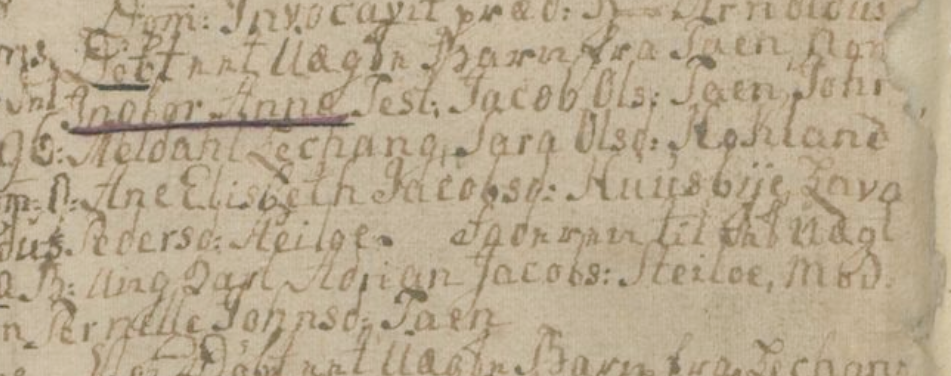 Dom: Invocavit præd: H Arnoldus
Døbt et Uægte Barn fra Taen, Nom
Ingbor Anne Test: Jacob Ols: Taen, John
Meldahl Lechang, Sara Olsd: Rohland
D. Ane Elisbeth Jacobsd: Huusbÿe, Lava
Pedersd: Heilge. Faderen til det Uægt
B: Ung Karl Adrian Jacobs: Steiloe, Mod.
Pernelle Johnsd: Taen
Døbt et Uægte Barn fra Lechang